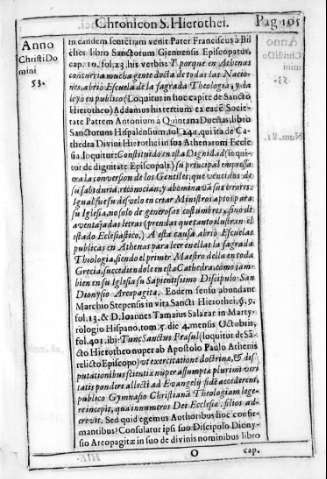 Chronicon S. Hierothei. Pag 105
Anno
Christi Do
mini
53.
in eandem sententiam venit Pater Franciscus à Bil
ches libro Sanctorum Giennensis Episcopatus,
cap. 10. fol. 23. his verbis: Y porque en Athenas
concurria mucha gente docta de todas las Nacio-
nes, abriò Escuela de la sagrada Theologia, y la
leyò en publico (Loquitur in hoc capite de Sancto
Hierotheo) Addamus his tertium ex eadē Societa-
te Patrem Antonium à Quintana Dueñas, libro
Sanctorum Hispalensium, fol. 241. qui ita de Ca-
thedra Divini Hierothei in sua Atheniensi Eccle
sia loquitur: Constituìdo en esta Dignidad (loqui-
tur de dignitate Episcopali) su principal empresa
era la conversion de los Gentiles, que vencidos de
su sabiduria, reconocian, y abominavā sus errores:
Igual fue su desvelo en criar Ministros aptos para
su Iglesia, no solo de generosas costumbres, sino de
aventajadas letras (prendas que tanto ilustran el
estado Eclesiastico,) A esta causa abriò Escuelas
publicas en Athenas para leer en ellas la sagrada
Theologia, siendo el primer Maestro della en toda
Grecia, sucediendole en esta Cathedra, como tam
bien en su Iglesia su Sapientissimo Discipulo San
Dionysio Areopagita. Eodem sensu abundant
Marchio Stepensis in vita Sancti Hierothei, §. 9.
fol. 13. & D. Ioannes Tamaius Salazar in Marty-
rologio Hispano, tom. 5. die 4. mensis Octobris,
fol. 401. ibi: Tunc Sanctus Præsul (loquitur de Sā-
cto Hierotheo nuper ab Apostolo Paulo Athenis
relicto Episcopo) ut exercitatione doctrinæ, & dis-
putationibus scientiæ nuper assumpta plurimi veri
tatis pondere allecti ad Evangelij fidē accederent,
publico Gymnasio Christianā Theologiam lege-
re incepit, qua innumeros Dei Ecclesiæ filios ad-
crevit. Sed quid egemus Authoribus hoc confir-
mantibus? Consulatur ipse suus Discipulo Diony-
sio Areopagitæ in suo de divinis nominibus libro
O cap.